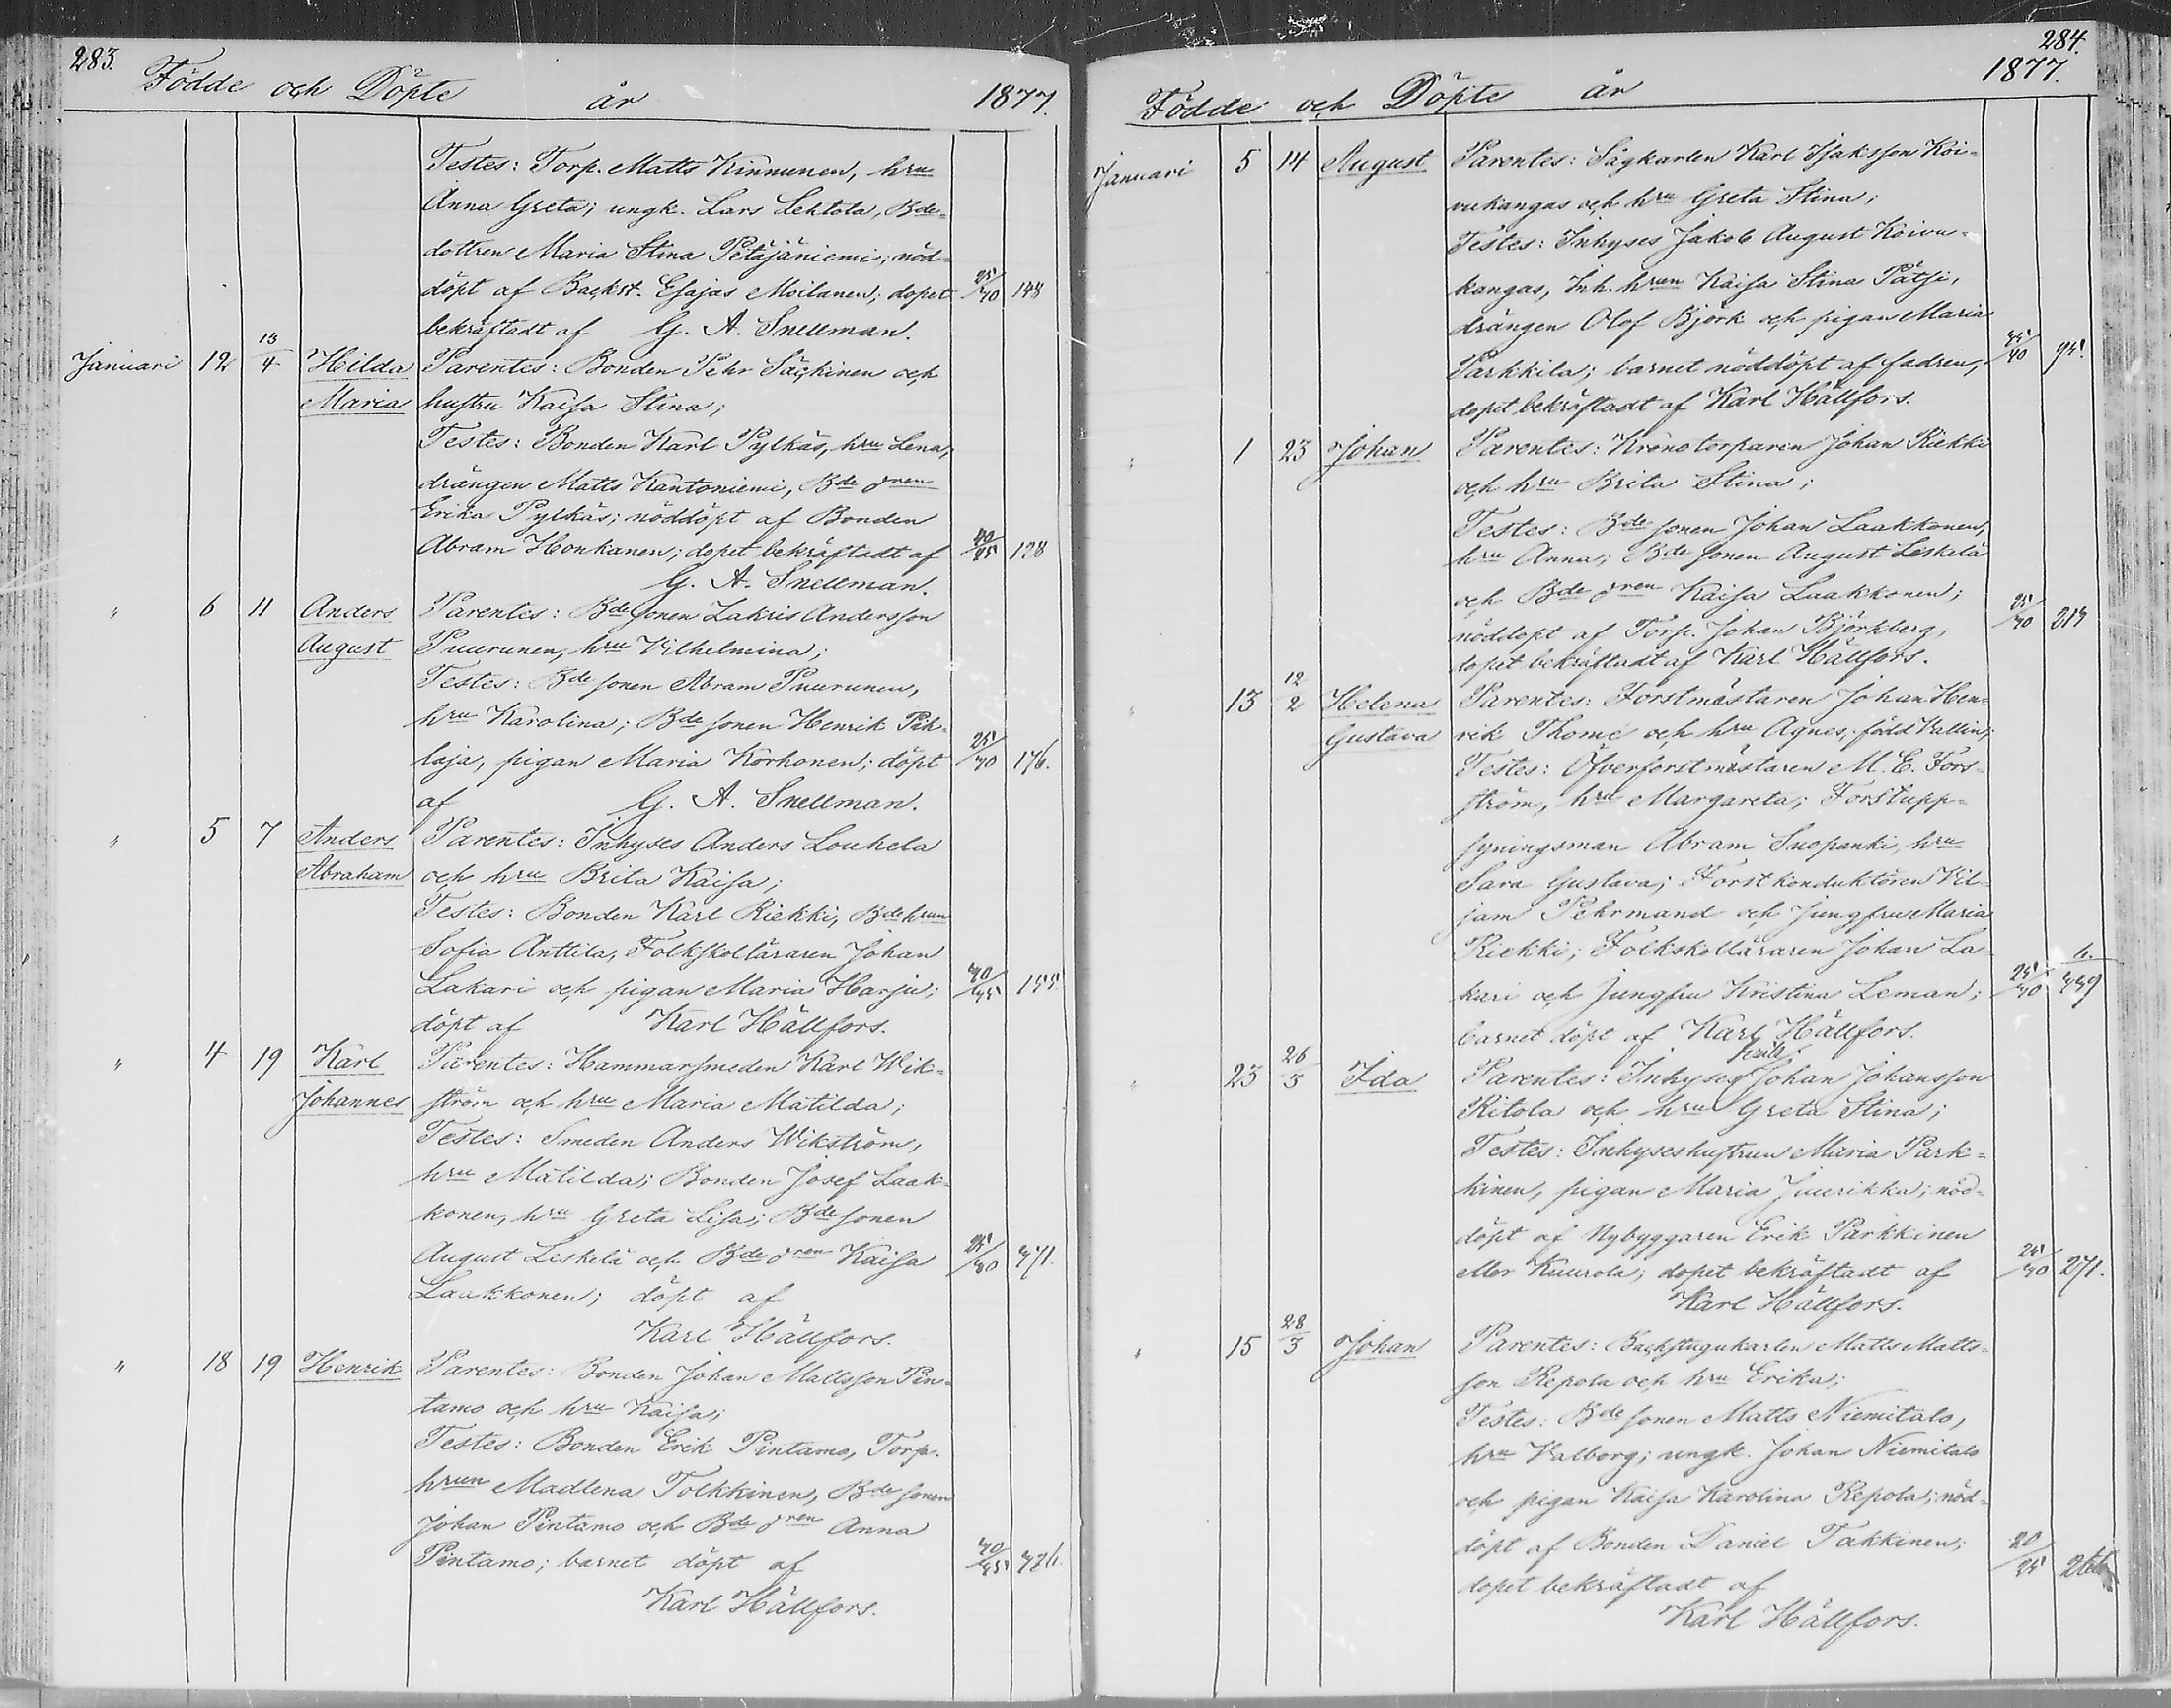 283.
Födde och Döpte år 1877.
Testes: Torp. Matts Kinnunen, hru
Anna Greta; ungk. Lars Lehtola, Bde-
dottren Maria Stina Petäjäniemi; nöd-
döpt af Backst. Esajas Moilanen; dopet 25/30 148
bekräftadt af G. A. Snellman.
Januari 12 13/4 Hilda Parentes: Bonden Pehr Säckinen och
Maria hustru Kaisa Stina;
Testes: Bonden Karl Pylkäs, hru Lena,
drängen Matts Kantoniemi, Bde dren
Erika Pylkäs; nöddöpt af Bonden
Abram Honkanen; dopet bekräftadt af 128
G. A. Snellman.
" 6 11 Anders Parentes: Bde sonen Zakris Andersson
August Puurunen, hru Vilhelmina;
Testes: Bde sonen Abram Puurunen,
hru Karolina; Bde sonen Henrik Pih-
laja, pigan Maria Korhonen; döpt
af G. A. Snellman.
" 5 7 Anders Parentes: Inhyses Anders Louhela
Abraham och hru Brita Kaisa;
Testes: Bonden Karl Riekki, Bde hrun
Sofia Anttila, Folkskolläraren Johan
Lakari och pigan Maria Harju;
döpt af Karl Hällfors.
" 4 19 Karl Parentes: Hammarsmeden Karl Wik-
Johannes ström och hru Maria Matilda;
Testes: Smeden Anders Wikström,
hru Matilda; Bonden Josef Laak-
konen, hru Greta Lisa; Bde sonen
August Leskelä och Bde dren Kaisa
Laakkonen; döpt af
Karl Hällfors.
" 18 19 Henrik Parentes: Bonden Johan Mattsson Pin-
tamo och hru Kaisa;
Testes: Bonden Erik Pintamo, Torp.
hrun Madlena Tolkkinen, Bde sonen
Johan Pintamo och Bde dren Anna
Pintamo; barnet döpt af
Karl Hällfors.
284.
Födde och Döpte år 1877.
Januari 5 14 August Parentes: Sågkarlen Karl Isaksson Koi-
vukangas och hru Greta Stina;
Testes: Inhyses Jakob August Koivu-
kangas, Inh. hrun Kaisa Stina Pätsi,
drängen Olof Björk och pigan Maria
Parkkila; barnet nöddöpt af fadren,
dopet bekräftadt af Karl Hällfors.
" 1 23 Johan Parentes: Kronotorparen Johan Riekki
och hru Brita Stina;
Testes: Bde sonen Johan Laakkonen,
hru Anna; Bde sonen August Leskelä
och Bde dren Kaisa Laakkonen;
nöddöpt af Torp. Johan Björkberg,
dopet bekräftadt af Karl Hällfors.
" 13 12/2 Helena Parentes: Forstmästaren Johan Hen-
Gustava rik Thomé och hru Agnes, född Vallin;
Testes: Öfverforstmästaren M. E. Fors-
ström, hru Margareta; Forstupp-
syningsman Abram Suopanki, hru
Sara Gustava; Forstkonduktören Vil-
jam Pehrmand och Jungfru Maria
Riekki; Folkskolläraren Johan La-
kari och Jungfru Kristina Leman;
barnet döpt af Karl Hällfors.
" 23 26/3 Ida Parentes: Inhyses Johan Johansson
Ritola och hru Greta Stina;
Testes: Inhyseshustrun Maria Park-
kinen, pigan Maria Juurikka; nöd-
döpt af Nybyggaren Erik Parkkinen
eller Kuurola; dopet bekräftadt af 25/30 271.
Karl Hällfors.
" 15 28/3 Johan Parentes: Backstugukarlen Matts Matts-
son Repola och hru Erika;
Testes: Bde sonen Matts Niemitalo,
hru Valborg; ungk. Johan Niemitalo
och pigan Kaisa Karolina Repola; nöd-
döpt af Bonden Daniel Takkinen; 20/25
dopet bekräftadt af
Karl Hällfors.